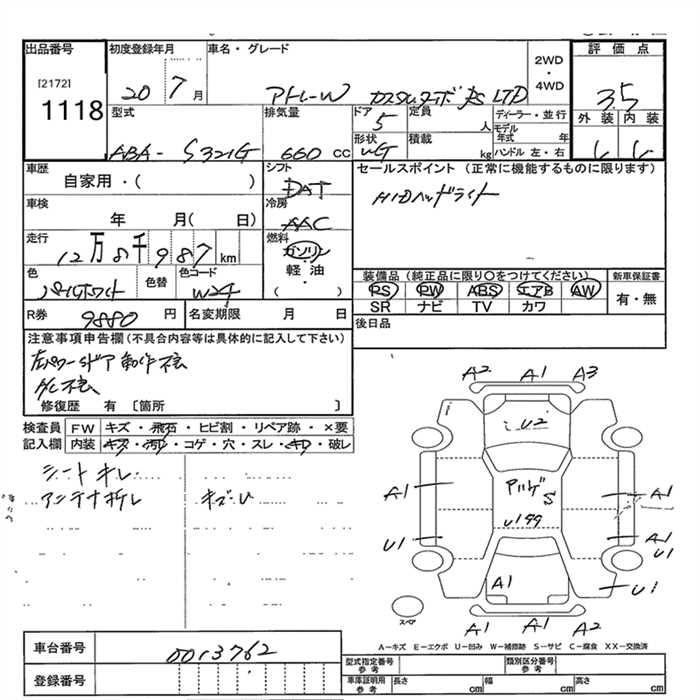 出品番号 初度登録年月 車名・グレード 評価点
[2172]
1118
20 7月
アトレーW カスタムターボRS LTD
2WD
・
4WD
3.5
外装 内装
型式 排気量 ドア 定員 ディーラー・並行
ABA- S321G 660 CC 5 人 モデル年式 年
形状 積載 kg ハンドル 左・右
車歴 シフト セールスポイント（正常に機能するものに限ります）
自家用・（ ） DAT
HIDヘッドライト
車検 冷房
年 月（ 日） AAC
走行 燃料
12万8千987km ガソリン
軽油
・
（ ）
色 色替 色コード 装備品（純正品に限り○をつけてください） 新車保証書
パールホワイト W24 PS PW ABS エアB AW 有・無
SR ナビ TV カワ
R券 9880円 名変期限 月 日 後日品
注意事項申告欄（不具合内容等は具体的に記入して下さい）
左パワースライドドア動作不良
修復歴 有〔箇所 〕
検査員 FW キズ・飛石・ヒビ割・リペア跡・×要
記入欄 内装 キズ・汚れ・コゲ・穴・スレ・キレ・破レ
シートキレ
アンテナ折レ キズ・U
A2 A1 A3
U2
A1 S A1
U1 A1
U1
A1 U1
A1 A1 A2
スペア
A－キズ E－エクボ U－凹み W－補修跡 S－サビ C－腐食 XX－交換済
車台番号 0013762
登録番号
型式指定番号 参考 類別区分番号 参考
車庫証明用 参考 長さ cm 幅 cm 高さ cm